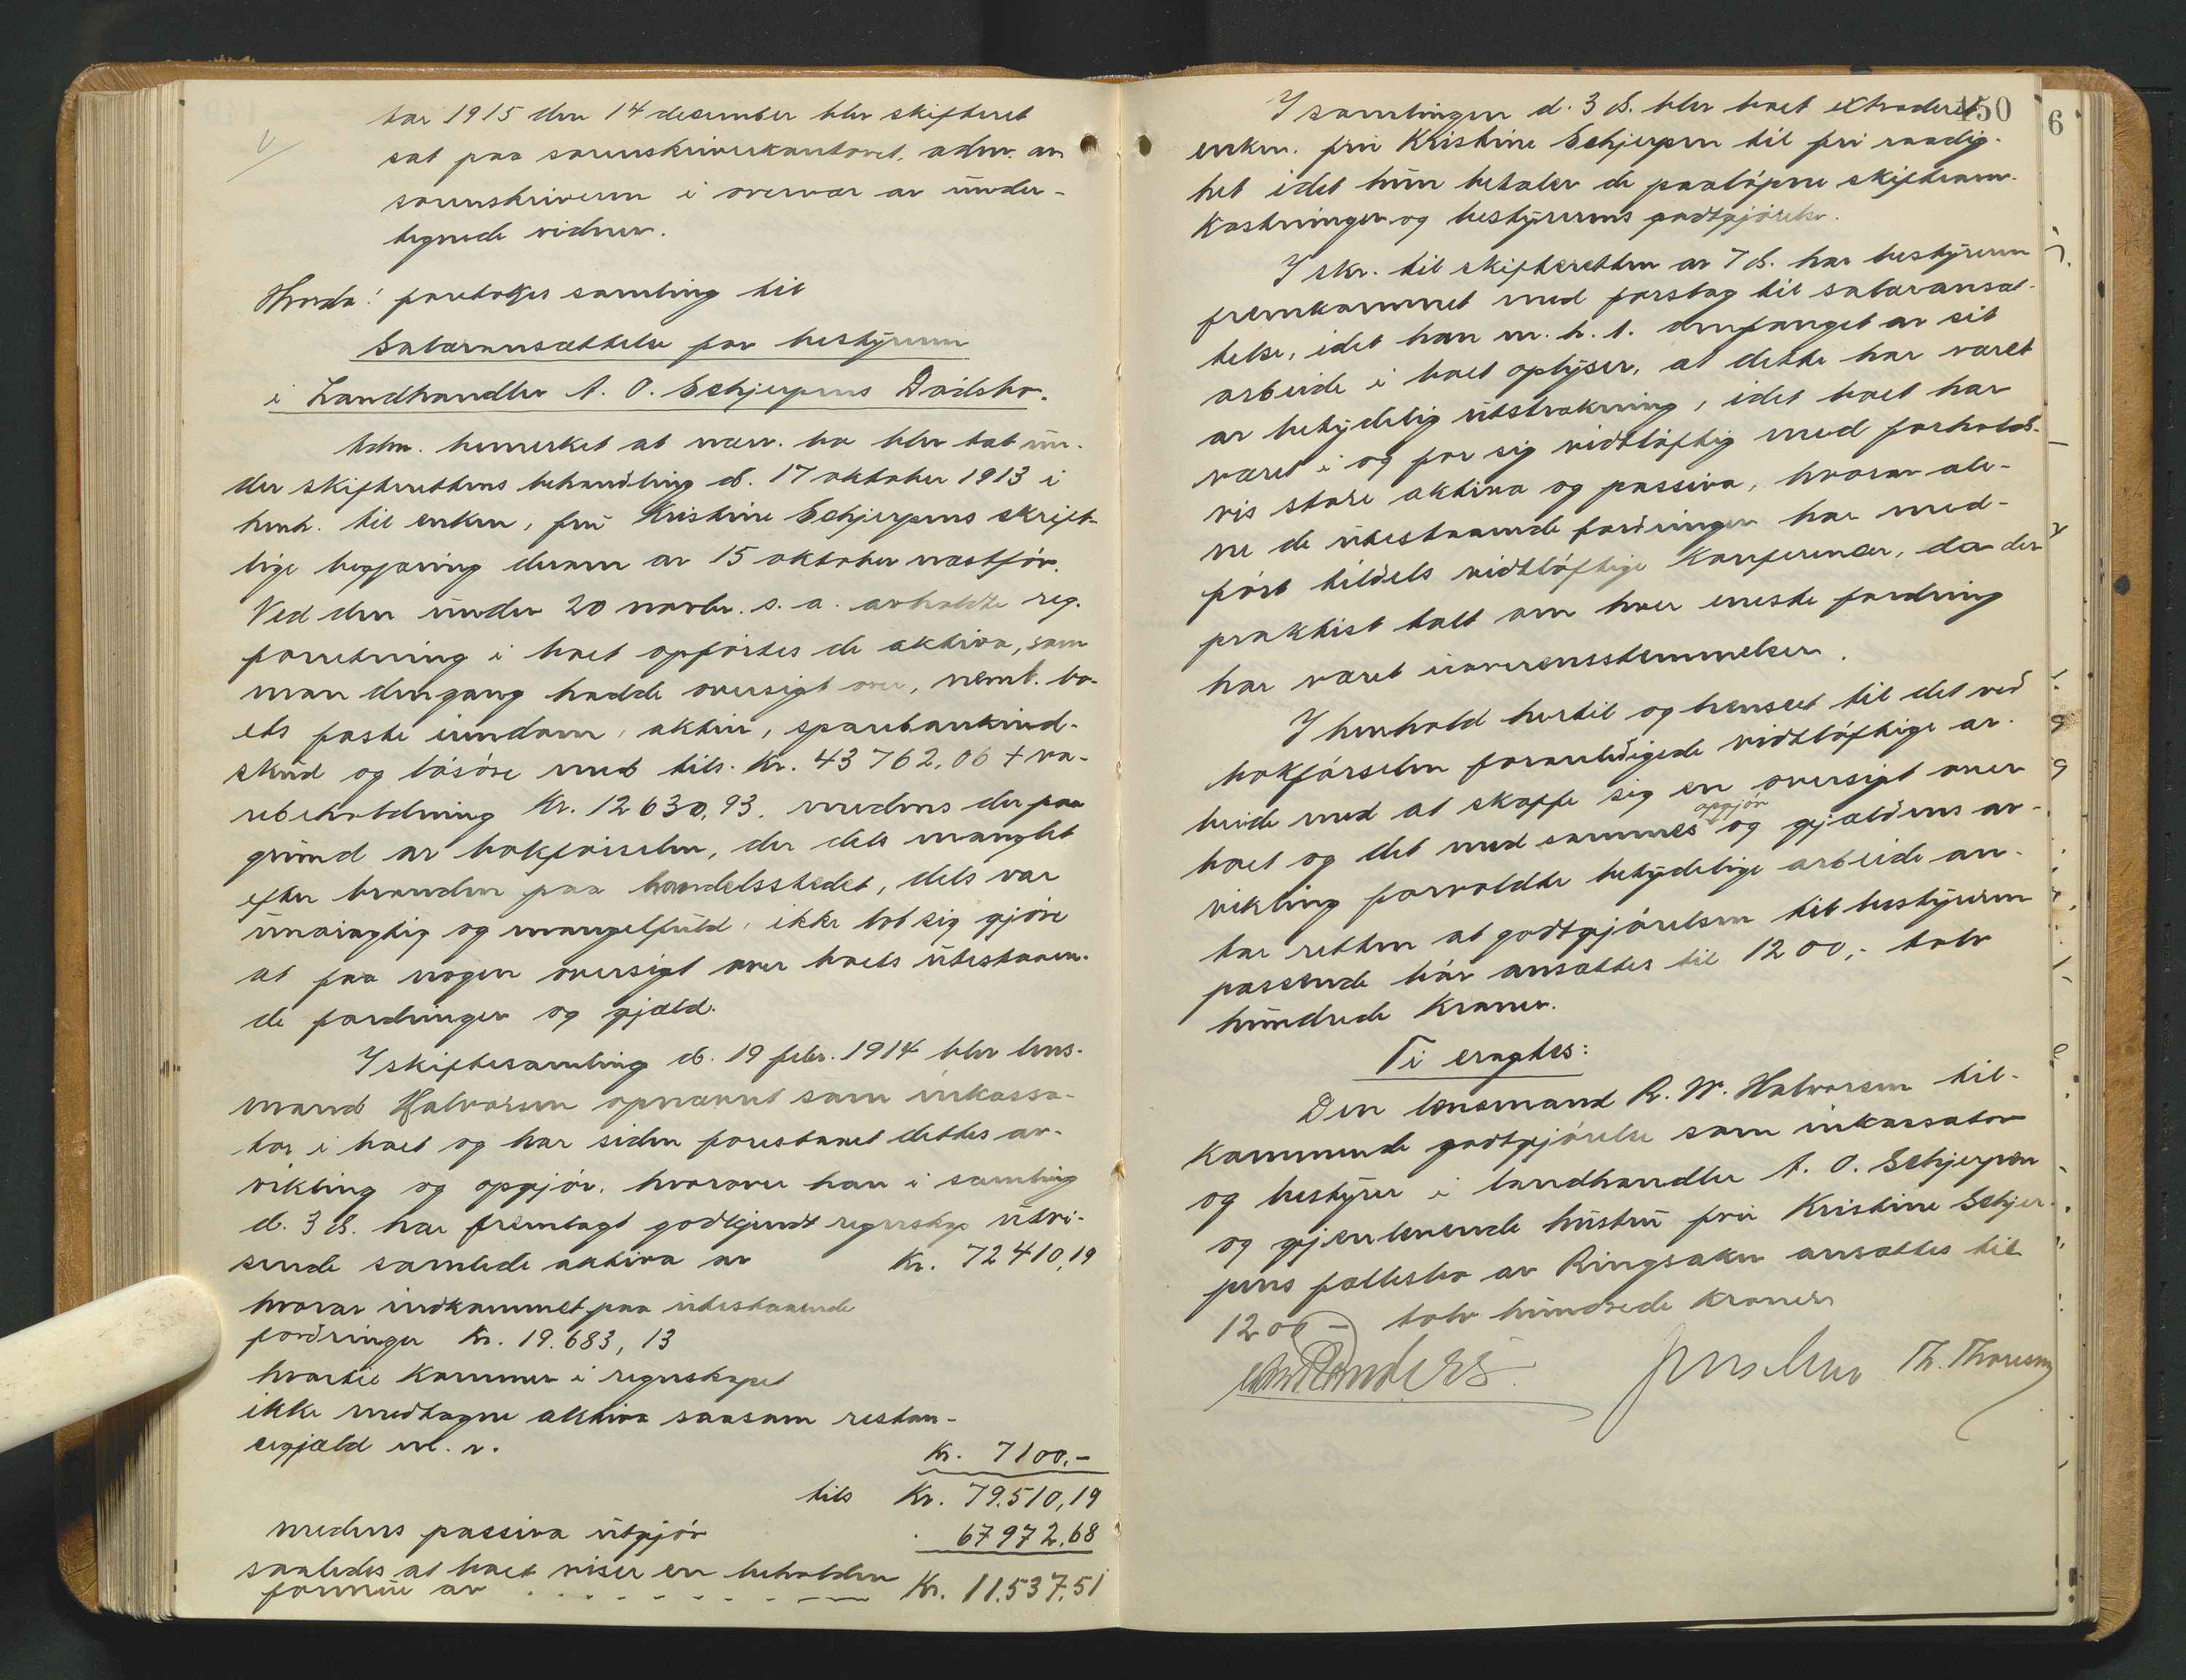 Aar 1915 den 14 desember blev skifteret
sat paa sorenskriverkontoret, adm. av
sorenskriveren i overvær av under-
tegnede vidner.
Hvorda: foretokes samling til
Salæransættelse for bestyreren
i Landhandler A. O. Schjerpens Dødsbo.
Adm. bemerket at nærv. bo blev tat un-
der skifterettens behandling d. 17 oktober 1913 i
henh. til enken, fru Kristine Schjerpens skrift-
lige begjæring derom av 15 oktober næstfør.
Ved den under 20 novbr. s. a. avholdte reg.
forretning i boet opførtes de aktiva, som
man dengang hadde oversigt over, neml. bo-
ets faste eiendom, aktier, sparebankind-
skud og løsøre med tils. Kr. 43 762,06 + va-
rebeholdning Kr. 12 630,93, medens der paa
grund av bokførselen, der dels manglet
efter branden paa handelsstedet, dels var
unøiagtig og mangelfuld, ikke lot sig gjøre
at faa nogen oversigt over boets utestaaen-
de fordringer og gjæld.
I skiftesamling d. 19 febr. 1914 blev lens-
mand Halvorsen opnævnt som inkassa-
tor i boet og har siden forestaaet dettes av-
vikling og opgjør, hvorover han i samling
d. 3 ds. har fremlagt godkjendt regnskap utvi-
sende samlede aktiva av Kr. 72 410,19
hvorav indkommet paa utestaaende
fordringer Kr. 19.683,13
hvortil kommer i regnskapet
ikke medtagne aktiva saasom restan-
cegjæld m. v.
Kr. 7100,-
tils Kr. 79.510,19
medens passiva utgjør 67 972,68
saaledes at boet viser en beholden
formue av Kr. 11.537,51
150
6
I samlingen d. 3 ds. blev boet extraderet
enken, fru Kristine Schjerpen til fri raadig-
het idet hun betaler de paaløpne skifteom-
kostninger og bestyrerens godtgjørelse.
I skr. til skifteretten av 7 ds. har bestyreren
fremkommet med forslag til salæransæt-
telse, idet han m. h. t. omfanget av sit
arbeide i boet oplyser, at dette har været
av betydelig utstrækning, idet boet har
været i og for sig vidtløftig med forholds-
vis store aktiva og passiva, hvorav ale-
ne de utestaaende fordringer har med-
ført tildels vidtløftige konferencer, da der
praktist talt om hver eneste fordring
har været uoverensstemmelser.
I henhold hertil og henseet til det ved
bokførselen foranledigede vidtløftige ar-
beide med at skaffe sig en oversigt over
opgjør
boet og det med sammes og gjældens av-
vikling forvoldte betydelige arbeide an-
tar retten at godtgjørelsen til bestyreren
passende bør ansættes til 1200,- tolv
hundrede kroner.
Ti eragtes:
Den lensmand R. W. Halvorsen til-
kommende godtgjørelse som inkassator
og bestyrer i landhandler A. O. Schjerpen
og gjenlevende hustru fru Kristine Schjer-
pens fællesbo av Ringsaker ansættes til
1200 - tolv hundrede kroner
Th. Thoresen